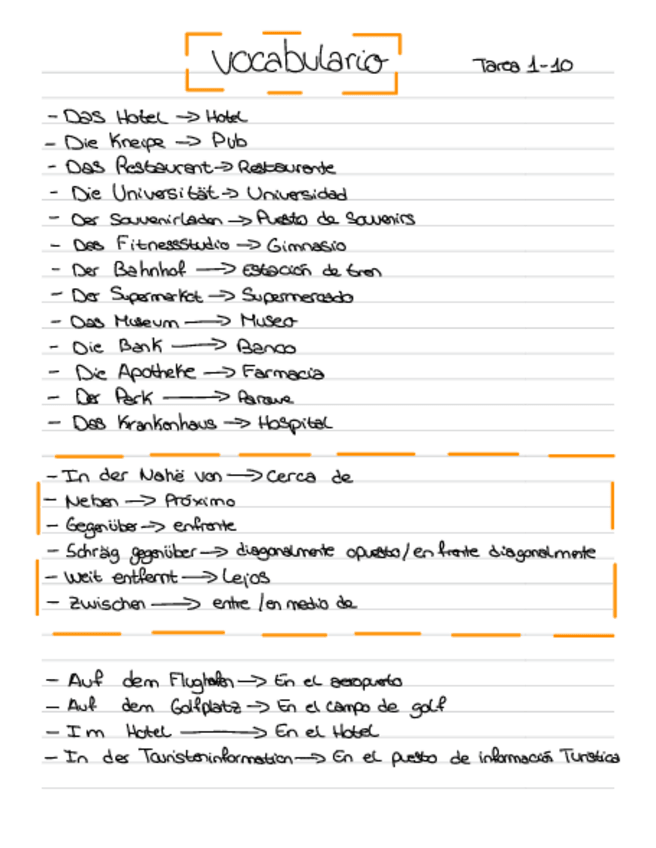 Vocabulario
Tarea 1-10
- Das Hotel -> Hotel
- Die Kneipe -> Pub
- Das Restaurant -> Restaurante
- Die Universität -> Universidad
- Der Souvenirladen -> Puesto de Souvenirs
- Das FitnessStudio -> Gimnasio
- Der Bahnhof -> Estación de tren
- Der Supermarket -> Supermercado
- Das Museum -> Museo
- Die Bank -> Banco
- Die Apotheke -> Farmacia
- Der Park -> Parque
- Das Krankenhaus -> Hospital
- In der Nahë von -> Cerca de
- Neben -> Próximo
- Gegenüber -> enfrente
- Schräg gegenüber -> diagonalmente opuesto/en frente diagonalmente
- Weit entfernt -> Lejos
- Zwischen -> entre /en medio de
- Auf dem Flughafen -> En el aeropuerto
- Auf dem Golfplatz -> En el campo de golf
- Im Hotel -> En el Hotel
- In der Touristeninformation -> En el puesto de información Turistica